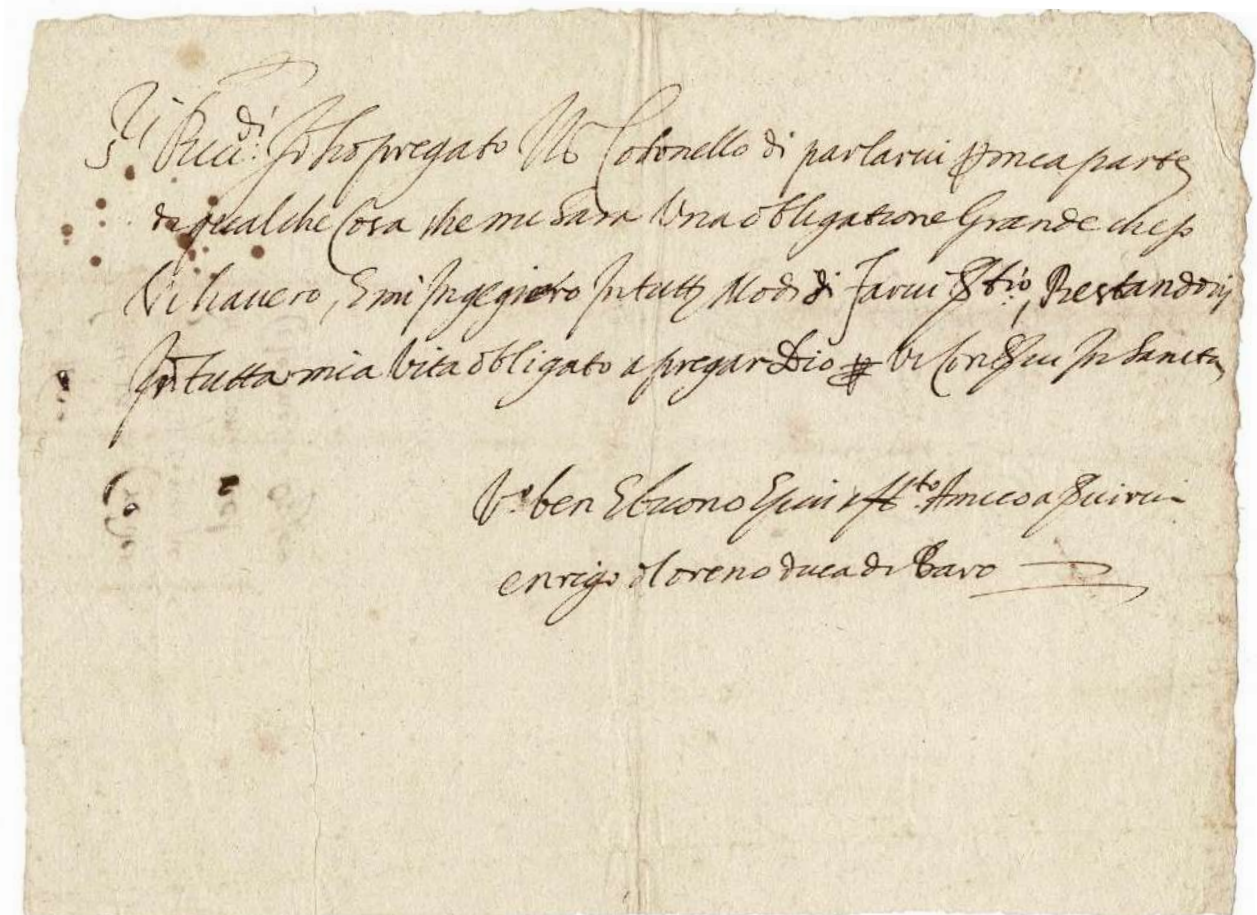 Io ho pregato Colonello di parlarui p mea parte
di qualche Cosa che mi Sara Una obligatione Grande che
Ui hauero, E mi Ingegnero In tutti Modi di Farui Restandoui
In tutta mia Uita obligato a pregar Dio Ui In Sancta
ben E buono Amico a
enrigo di loreno duca di Baro